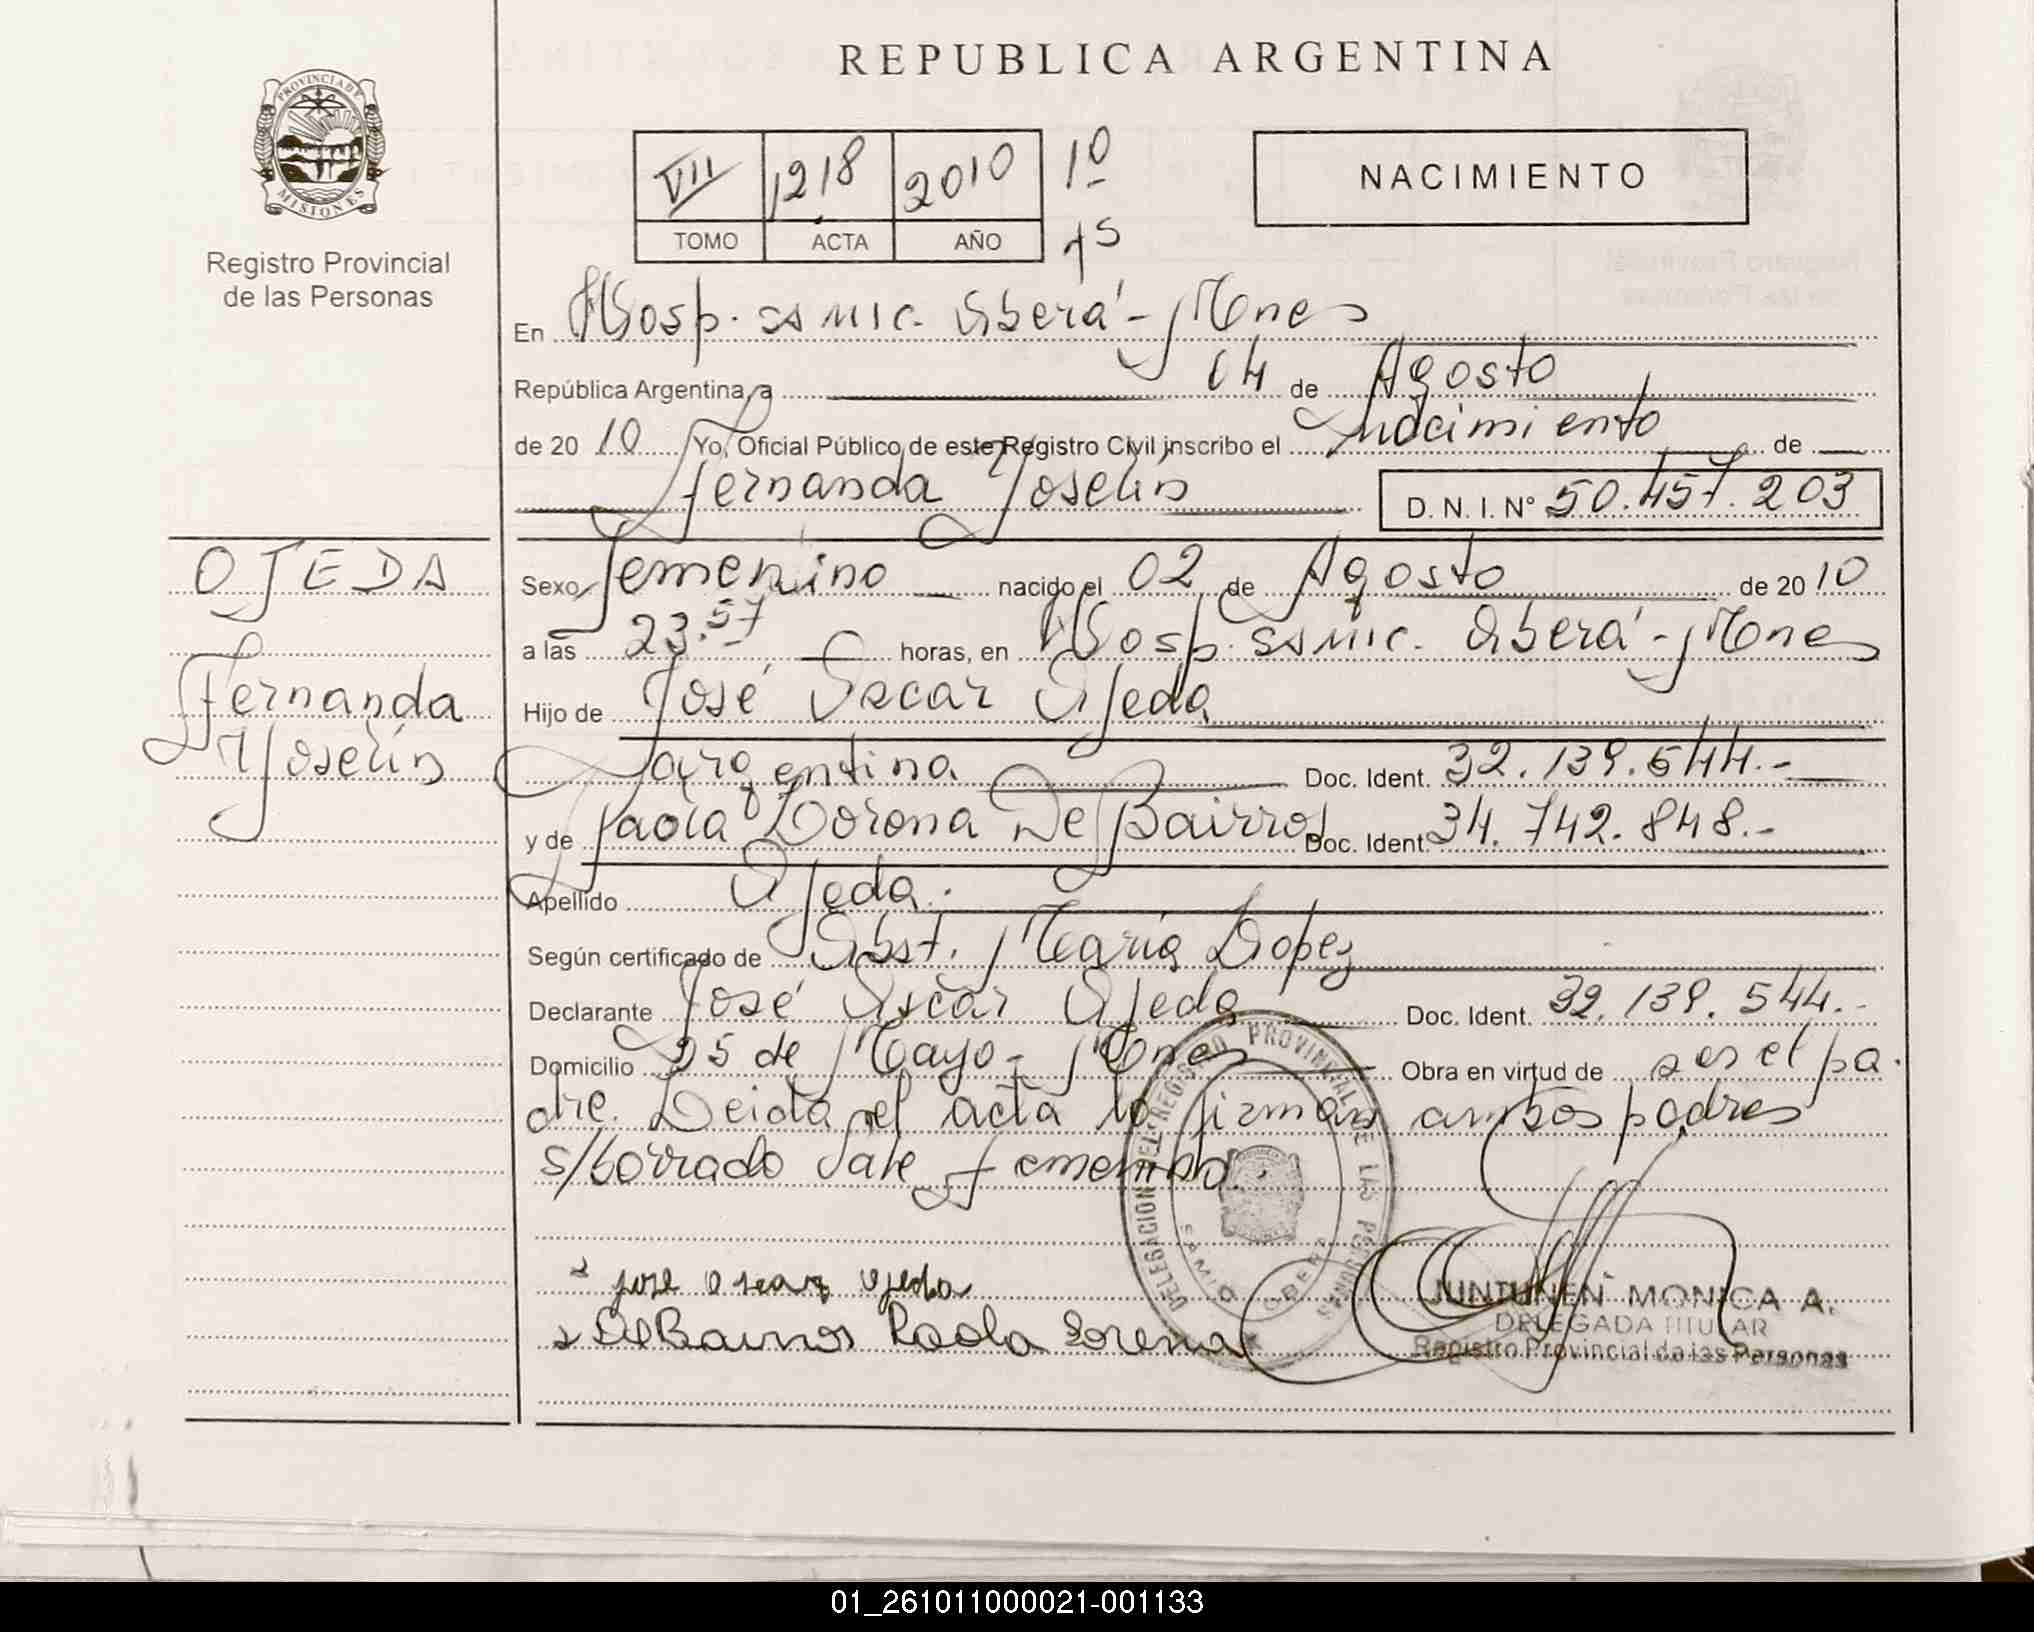 REPUBLICA ARGENTINA
PROVINCIA DE MISIONES
Registro Provincial
de las Personas
VII 1218 2010 1º
TOMO ACTA AÑO 1S
NACIMIENTO
En Hosp. SAMIC. Oberá - Mnes
República Argentina, a 04 de Agosto
de 20 10 Yo, Oficial Público de este Registro Civil inscribo el Nacimiento de
Fernanda Yoselin D. N. I. Nº 50.457.203
OJEDA
Fernanda
Yoselin
Sexo Femenino nacido el 02 de Agosto de 20 10
a las 23.57 horas, en Hosp. SAMIC. Oberá - Mnes
Hijo de José Oscar Ojeda
argentina Doc. Ident. 32.139.544.-
y de Paola Lorena De Bairros Doc. Ident 34.742.848.-
Apellido Ojeda.
Según certificado de Obst. María Lopez
Declarante José Oscar Ojeda Doc. Ident. 32.139.544.-
Domicilio 25 de Mayo - Mnes Obra en virtud de ser el pa.
dre. Leida el acta la firman ambos padres
s/borrado vale femenino.
DELEGACION DEL REGISTRO PROVINCIAL DE LAS PERSONAS
SAMIC OBERA
Jose Oscar Ojeda
De Bairros Paola Lorena
JUNTUNEN MONICA A.
DELEGADA TITULAR
Registro Provincial de las Personas
01_261011000021-001133